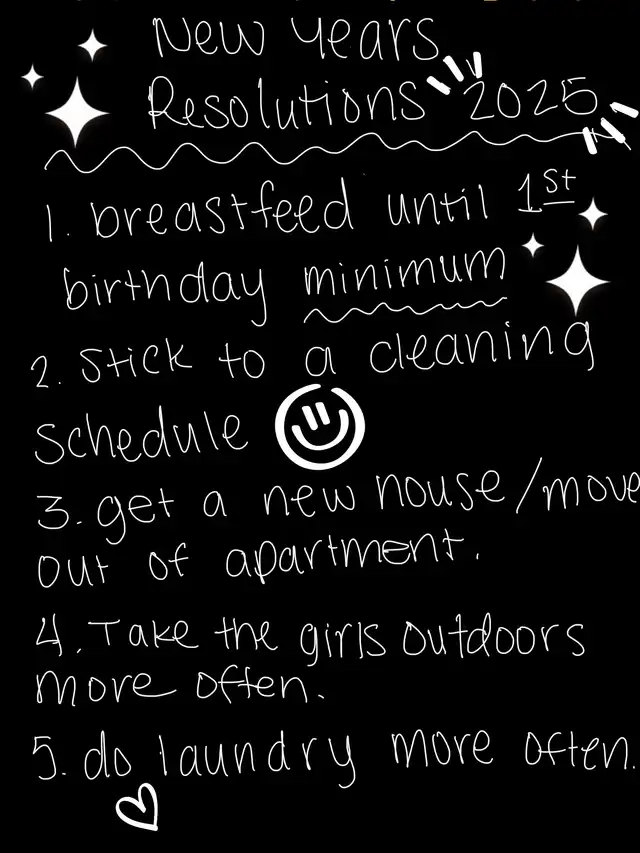 New Years
Resolutions 2025
1. breastfeed until 1st
birthday minimum
2. Stick to a cleaning
schedule
3. get a new house/move
out of apartment.
4. Take the girls outdoors
more often.
5. do laundry more often.